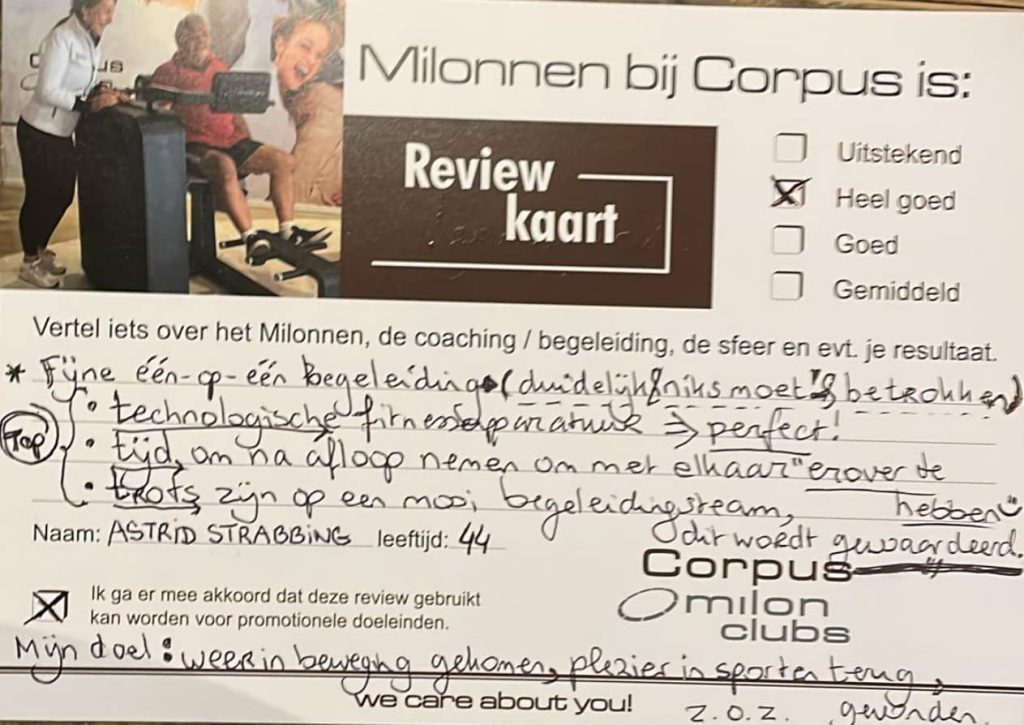 Corpus
Milonnen bij Corpus is:
Review
kaart
Uitstekend
Heel goed
Goed
Gemiddeld
Vertel iets over het Milonnen, de coaching / begeleiding, de sfeer en evt. je resultaat.
* Fijne één-op-één begeleiding (duidelijk & niks moet & betrokken)
Top
• technologische fitnessapparatuur => perfect!
• tijd, om na afloop nemen om met elkaar "erover te
hebben
• trots zijn op een mooi begeleidingsteam,
dit wordt gewaardeerd.
Naam: ASTRID STRABBING leeftijd: 44
Corpus
milon
clubs
Ik ga er mee akkoord dat deze review gebruikt
kan worden voor promotionele doeleinden.
Mijn doel: weer in beweging gekomen, plezier in sporten terug,
gevonden
we care about you!
z.o.z.